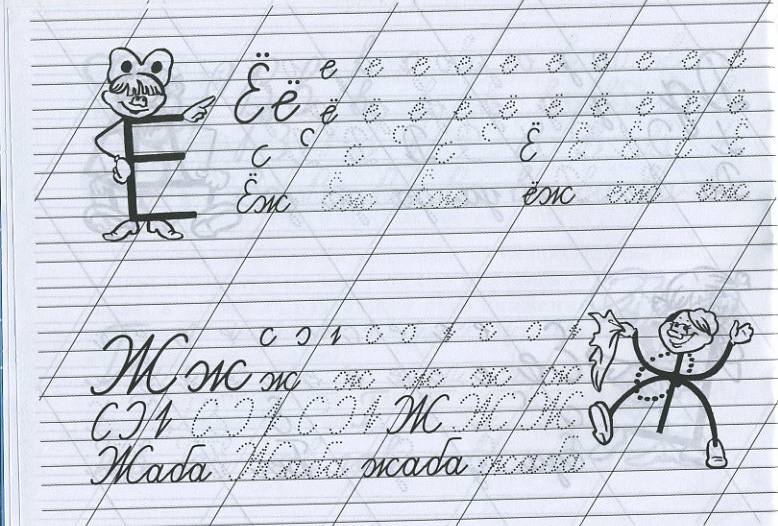 Ёё е е е е е е е е е е
ё ё ё ё ё ё ё ё ё ё
с с с с с с Ё Ё Ё Ё Ё
Ёж Ёж Ёж ёж ёж ёж
Жж ж ж ж ж ж
Ж Ж Ж Ж
Жаба Жаба жаба жаба